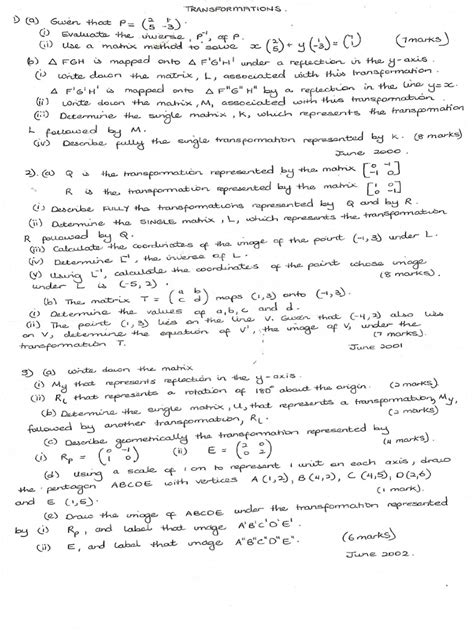 TRANSFORMATIONS.
1) (a) Given that P = (2 1 5 -3).
(i) Evaluate the inverse, P⁻¹, of P.
(ii) Use a matrix method to solve x(2 5) + y(1 -3) = (1 1) (7 marks)
(b) Δ FGH is mapped onto Δ F'G'H' under a reflection in the y-axis.
(i) Write down the matrix, L, associated with this transformation.
Δ F'G'H' is mapped onto Δ F"G"H" by a reflection in the line y=x.
(ii) Write down the matrix, M, associated with this transformation.
(iii) Determine the single matrix, K, which represents the transformation
L followed by M.
(iv) Describe fully the single transformation represented by K. (8 marks)
June 2000.
2). (a) Q is the transformation represented by the matrix [0 -1 -1 0]
R is the transformation represented by the matrix
(i) Describe FULLY the transformations represented by Q and by R.
(ii) Determine the SINGLE matrix, L, which represents the transformation
R followed by Q.
(iii) Calculate the coordinates of the image of the point (-1,3) under L.
(iv) Determine L⁻¹, the inverse of L.
(v) Using L⁻¹, calculate the coordinates of the point whose image
under L is (-5, 2). (8 marks).
(b) The matrix T = (a b c d) maps (1,3) onto (-1,3).
(i) Determine the values of a, b, c and d.
(ii) The point (1,3) lies on the line V. Given that (-4,2) also lies
on V, determine the equation of V', the image of V, under the
transformation T. (7 marks)
June 2001
3) (a) Write down the matrix
(i) My that represents reflection in the y-axis.
(ii) that represents a rotation of 180° about the origin. (2 marks)
(b) Determine the single matrix, U, that represents a transformation, My,
followed by another transformation, (2 marks)
(c) Describe geometrically the transformation represented by
(i) Rp = (0 -1 1 0) (ii) E = (2 0 0 2) (4 marks).
(d) Using a scale of 1 cm to represent 1 unit on each axis, draw
the pentagon ABCDE with vertices A (1,2), B (4,2), C (4,5), D (2,6)
and E (1,5). (1 mark).
(e) Draw the image of ABCDE under the transformation represented
by (i) Rp, and label that image A'B'C'D'E'.
(ii) E, and label that image A"B"C"D"E". (6 marks)
June 2002.